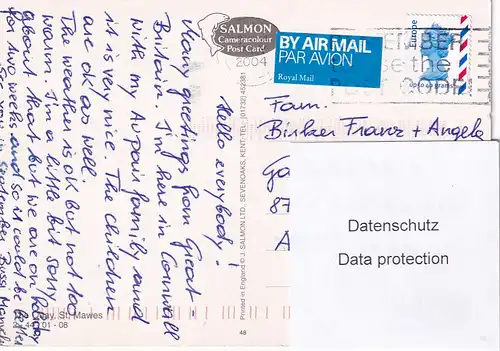 SALMON
Cameracolour
Post Card
2004
BY AIR MAIL
PAR AVION
Royal Mail
Europe
up to 40 grams
the
Fam.
Franz + Angela
87
A
Datenschutz
Data protection
Printed in England © J. SALMON LTD., SEVENOAKS, KENT. TEL: (01732) 452381
48
Hello everybody!
Many greetings from Great-
Britain. I'm here in Cornwall
with my Aupair family and
it is very nice. The children
are ok as well.
The weather is ok but not too
warm. I'm a little bit sorry
about that but we are on holiday
for two weeks and so it could be better
See you in September
St. Mawes
01 - 08